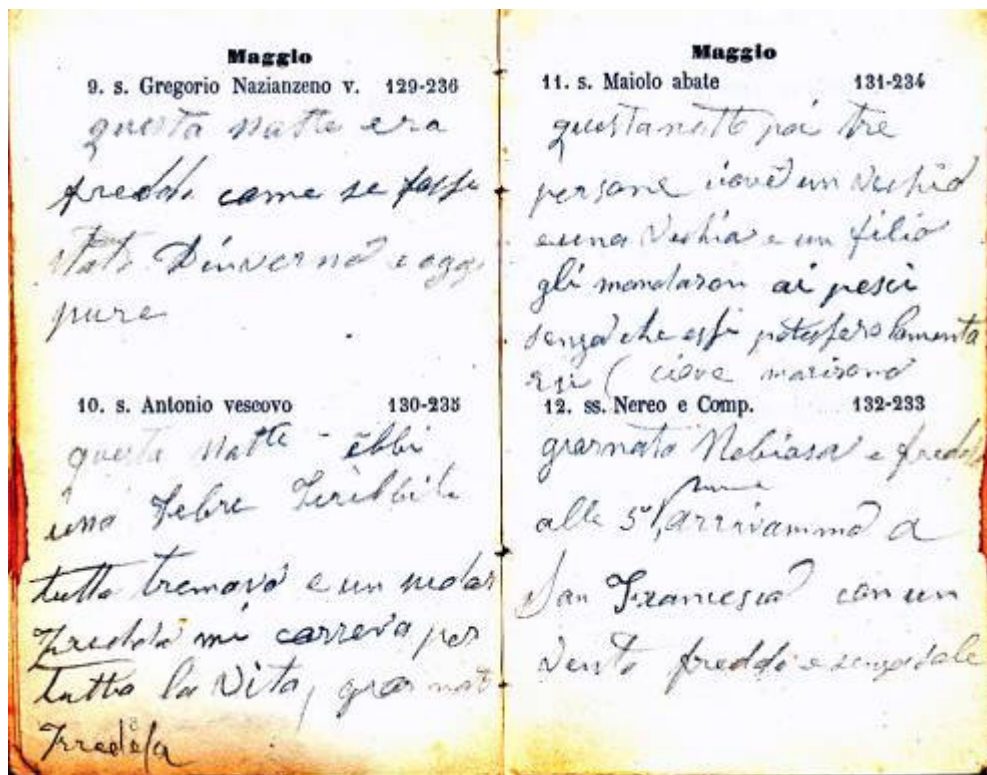 Maggio
9. s. Gregorio Nazianzeno v. 129-236
questa notte era
freddo come se fosse
stato D'inverno e oggi
pure
10. s. Antonio vescovo 130-235
questa notte - ebbi
una Febre Teribbile
tutto tremavo e un sudor
Freddo mi correva per
tutta la Vita, giornat
Fredda
Maggio
11. s. Maiolo abate 131-234
questanotte poi tre
persone iove un Vechio
e una Vechia e un filio
gli mandaron ai pesci
senza che essi potessero lamenta
rsi ( ciove morirono
12. ss. Nereo e Comp. 132-233
giornata Nebiosa e fredda
alle 5 pure arrivammo a
San Francesco con un
Vento freddo e senza sole